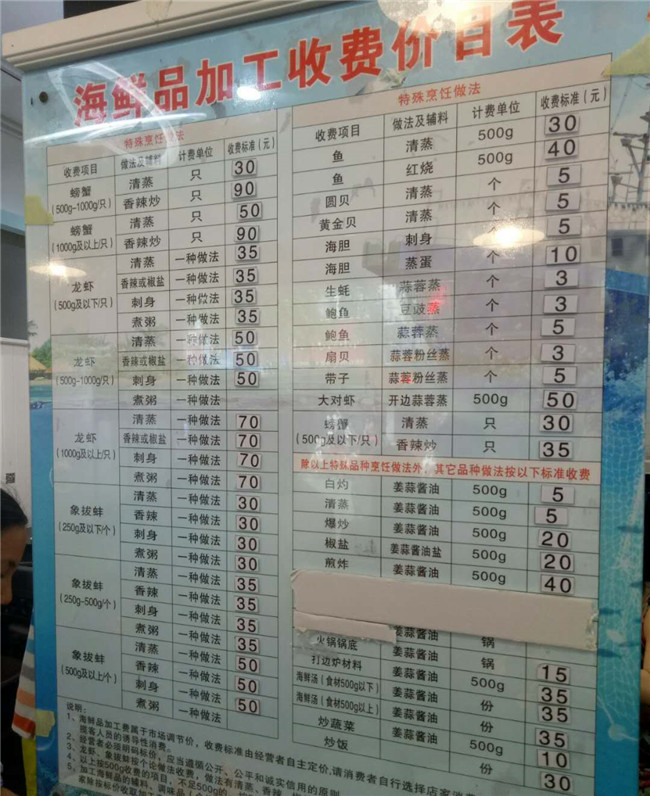 海鲜品加工收费价目表
特殊烹饪做法
收费项目 做法及辅料 计费单位 收费标准(元)
螃蟹 (500g-1000g/只) 清蒸 只 30
香辣炒 只 90
螃蟹 (1000g及以上/只) 清蒸 只 50
香辣炒 只 90
龙虾 (500g及以下/只) 清蒸 一种做法 35
香辣或椒盐 一种做法 35
刺身 一种做法 35
煮粥 一种做法 35
龙虾 (500g-1000g/只) 清蒸 一种做法 50
香辣或椒盐 一种做法 50
刺身 一种做法 50
煮粥 一种做法
龙虾 (1000g及以上/只) 清蒸 一种做法 70
香辣或椒盐 一种做法 70
刺身 一种做法 70
煮粥 一种做法 70
象拔蚌 (250g及以下/个) 清蒸 一种做法 30
香辣 一种做法 30
刺身 一种做法 30
煮粥 一种做法 30
象拔蚌 (250g-500g/个) 清蒸 一种做法 35
香辣 一种做法 35
刺身 一种做法 35
煮粥 一种做法 35
象拔蚌 (500g及以上/个) 清蒸 一种做法 50
香辣 一种做法 50
刺身 一种做法 50
煮粥 一种做法
特殊烹饪做法
收费项目 做法及辅料 计费单位 收费标准(元)
鱼 清蒸 500g 30
鱼 红烧 500g 40
圆贝 清蒸 个 5
黄金贝 清蒸 个 5
海胆 刺身 个 5
海胆 蒸蛋 个 10
生蚝 蒜蓉蒸 个 3
鲍鱼 豆豉蒸 个 3
鲍鱼 蒜蓉蒸 个 5
扇贝 蒜蓉粉丝蒸 个 3
带子 蒜蓉粉丝蒸 个 5
大对虾 开边蒜蓉蒸 500g 50
螃蟹 (500g及以下/只) 清蒸 只 30
香辣炒 只 35
除以上特殊品种烹饪做法外，其它品种做法按以下标准收费
白灼 姜蒜酱油 500g 5
清蒸 姜蒜酱油 500g 5
爆炒 姜蒜酱油 500g 20
椒盐 姜蒜酱油盐 500g 20
煎炸 姜蒜酱油 500g 40
火锅锅底 姜蒜酱油 锅
打边炉材料 姜蒜酱油 锅 15
海鲜汤 (食材500g以下) 姜蒜酱油 500g 35
海鲜汤 (食材500g以上) 姜蒜酱油 份 35
炒蔬菜 姜蒜酱油 500g 10
炒饭 份 30
说明：
1、海鲜品加工费属于市场调节价，收费标准由经营者自主定价,请消费者自行选择店家消费
揽客人员的诱导性消费。
2、经营者必须明码标价，应当遵循公开、公平和诚实信用的原则
3、龙虾、象拔蚌按个论做法收费，做法有清蒸、香辣、
4、以上按500g收费的项目，不足500g的
5、加工海鲜品的辅料、调味品